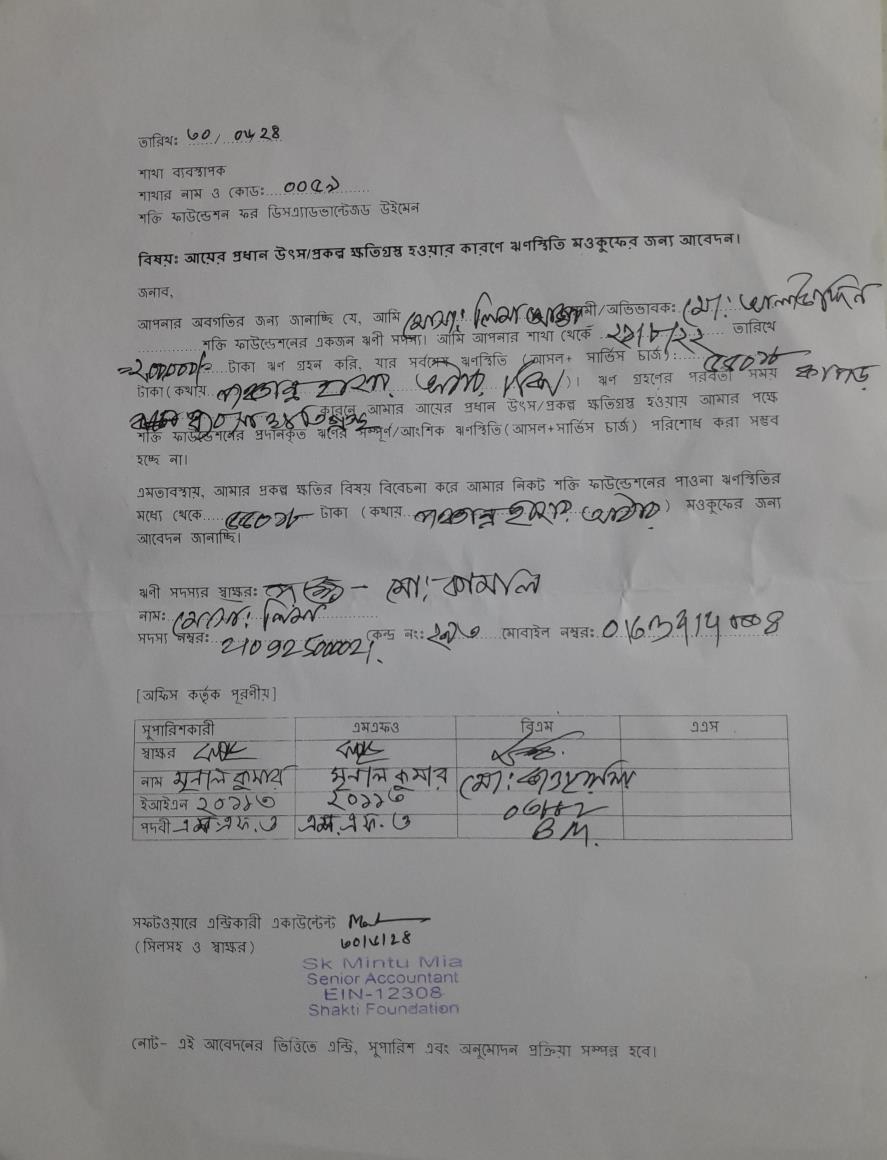 তারিখঃ ৩০/
শাখা ব্যবস্থাপক
শাখার নাম ও কোড: ০০৫৯
শক্তি ফাউন্ডেশন ফর ডিসএ্যাডভান্টেজড উইমেন
বিষয়ঃ আয়ের প্রধান উৎস/প্রকল্প ক্ষতিগ্রস্ত হওয়ার কারণে ঋণস্থিতি মওকুফের জন্য আবেদন।
জনাব,
আপনার অবগতির জন্য জানাচ্ছি যে, আমি মোসা: লিমা /অভিভাবক: মো:
শক্তি ফাউন্ডেশনের একজন ঋণী সদস্য। আমি আপনার শাখা থেকে তারিখে
টাকা ঋণ গ্রহন করি, যার সর্বশেষ ঋণস্থিতি (আসল+ সার্ভিস চার্জ):
টাকা(কথায় )। ঋণ গ্রহণের পরবর্তী সময় কাপড়
কারনে আমার আয়ের প্রধান উৎস/প্রকল্প ক্ষতিগ্রস্ত হওয়ায় আমার পক্ষে
শক্তি ফাউন্ডেশনের প্রদানকৃত ঋণের সম্পূর্ণ/আংশিক ঋণস্থিতি(আসল+সার্ভিস চার্জ) পরিশোধ করা সম্ভব
হচ্ছে না।
এমতাবস্থায়, আমার প্রকল্প ক্ষতির বিষয় বিবেচনা করে আমার নিকট শক্তি ফাউন্ডেশনের পাওনা ঋণস্থিতির
মধ্যে থেকে টাকা (কথায় ) মওকুফের জন্য
আবেদন জানাচ্ছি।
ঋনী সদস্যর স্বাক্ষর: মো: কামাল
নাম: মোসা: লিমা
সদস্য নম্বর: 21092500021 কেন্দ্র নং: মোবাইল নম্বর:
[অফিস কর্তৃক পূরণীয়]
সুপারিশকারী এমএফও বিএম এএস
স্বাক্ষর
নাম মৃনাল কুমার মৃনাল কুমার মো:
ইআইএন ২০১১৩ ২০১১৩
পদবী এম.এফ.ও এম.এফ.ও B M.
সফটওয়ারে এন্ট্রিকারী একাউন্টেন্ট
(সিলসহ ও স্বাক্ষর) ৩০/৫/২৪
Sk Mintu Mia
Senior Accountant
EIN-12308
Shakti Foundation
নোট- এই আবেদনের ভিত্তিতে এন্ট্রি, সুপারিশ এবং অনুমোদন প্রক্রিয়া সম্পন্ন হবে।